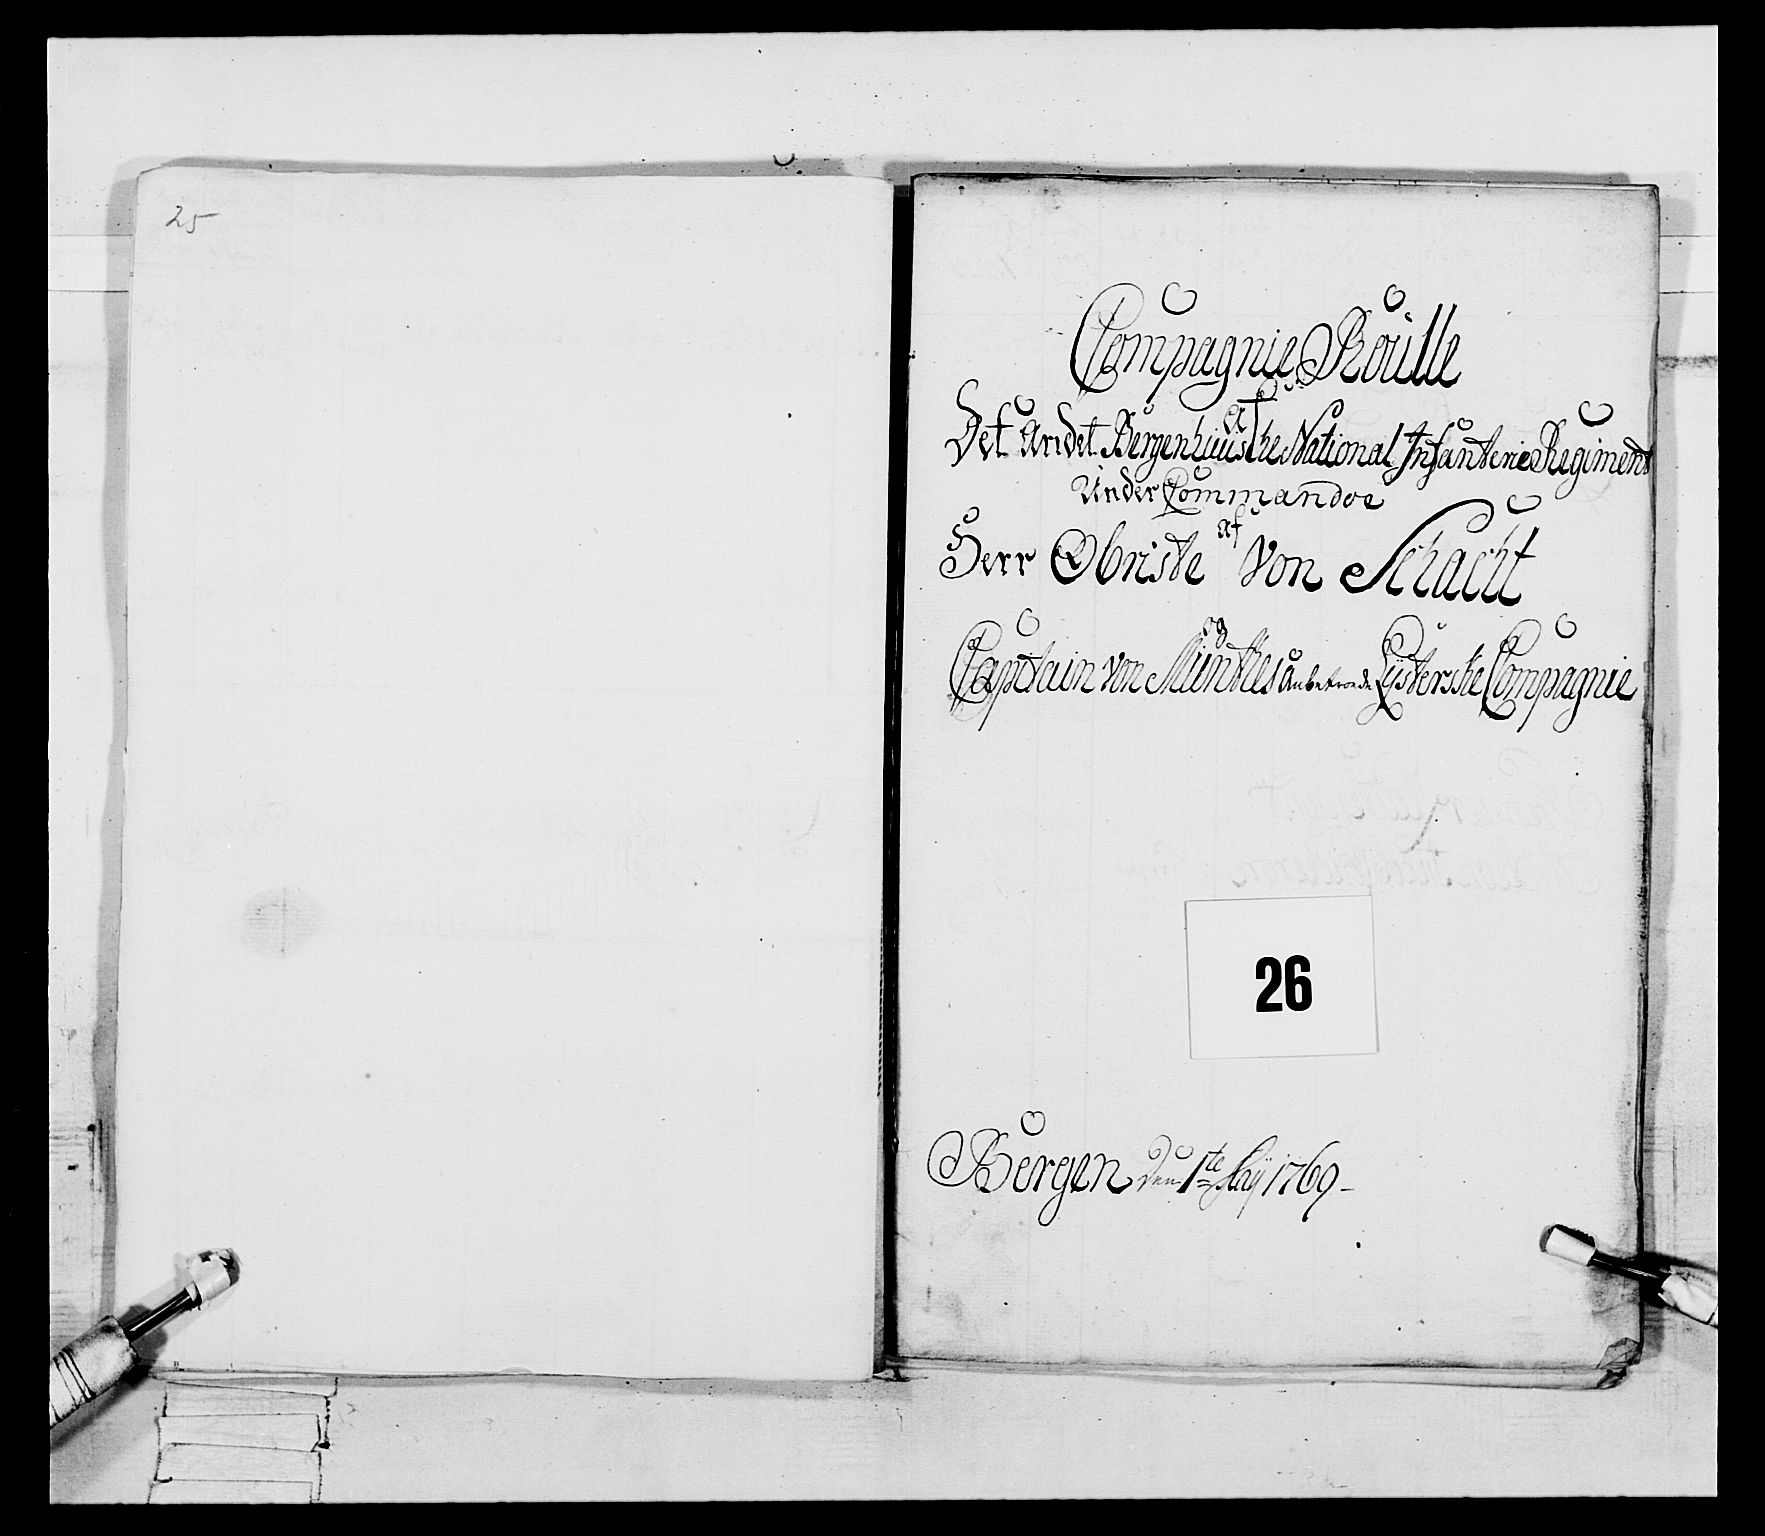 25
Compagnie Roulle
af
Det Andet Bergenhuusske National Infanterie Regiment
Under Commandoe
af
Herr Obriste Von Schacht
og
Captain von Münthes anbetroede Lÿsterske Compagnie
26
Bergen Den 1te Maÿ 1769